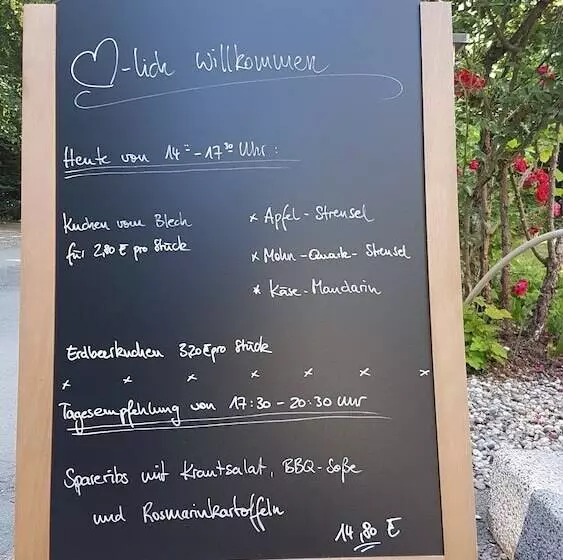 ♡-lich willkommen
Heute von 14= - 17³⁰ Uhr:
Kuchen vom Blech
für 2,80 € pro Stück
x Apfel-Streusel
x Mohn-Quark-Streusel
x Käse-Mandarin
Erdbeerkuchen 3,20 € pro Stück
x x x x x x x
Tagesempfehlung von 17:30 - 20:30 Uhr
Spareribs mit Krautsalat, BBQ-Soße
und Rosmarinkartoffeln
14,80 €